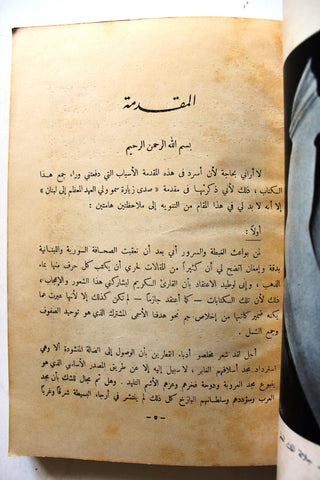 المقدمة
بسم الله الرحمن الرحيم
لا أراني بحاجة لأن أسرد في هذه المقدمة الأسباب التي دفعتني وراء جمع هذا
الكتاب ، ذلك لأني ذكرتها في مقدمة « صدى زيارة سمو ولي العهد المعظم إلى لبنان »
إلا أنه لا بد لي في هذا المقام من التنويه إلى ملاحظتين هامتين :
أولاً :
لمن بواعث الغبطة والسرور أني بعد أن تعقبت الصحافة السورية واللبنانية
بدقة وإمعان اتضح لي أن كثيراً من المقالات لحري أن يكتب كل حرف منها بماء
الذهب ، وإني لوطيد الاعتقاد بأن القارئ الكريم ليشاركني بهذا الشعور والإعجاب ،
ذلك لأن تلك الكتابات – كما أعتقد جازماً – لم تكن كذلك إلا لأنها صدرت عما
يكنه ضمير كاتبها من إخلاص جم نحو هدفنا الأسمى المشترك الذي هو توحيد الصفوف
وجمع الشمل .
أجل لقد شعر مخلصو أدباء القطرين بأن الوصول إلى الضالة المنشودة ألا وهي
استرداد مجد أسلافهم الغابر ، لا سبيل إليه إلا عن طريق المصدر الأساسي الذي هو
ينبوع مجد العروبة ودوحة فخرهم وعزهم الأشم التليد . وهل ثم مجال للشك بأن مجد
العرب وسؤددهم وسلطانهم الباذخ كل ذلك لم ينتشر في أرجاء البسيطة شرقاً وغرباً
– ٥ –